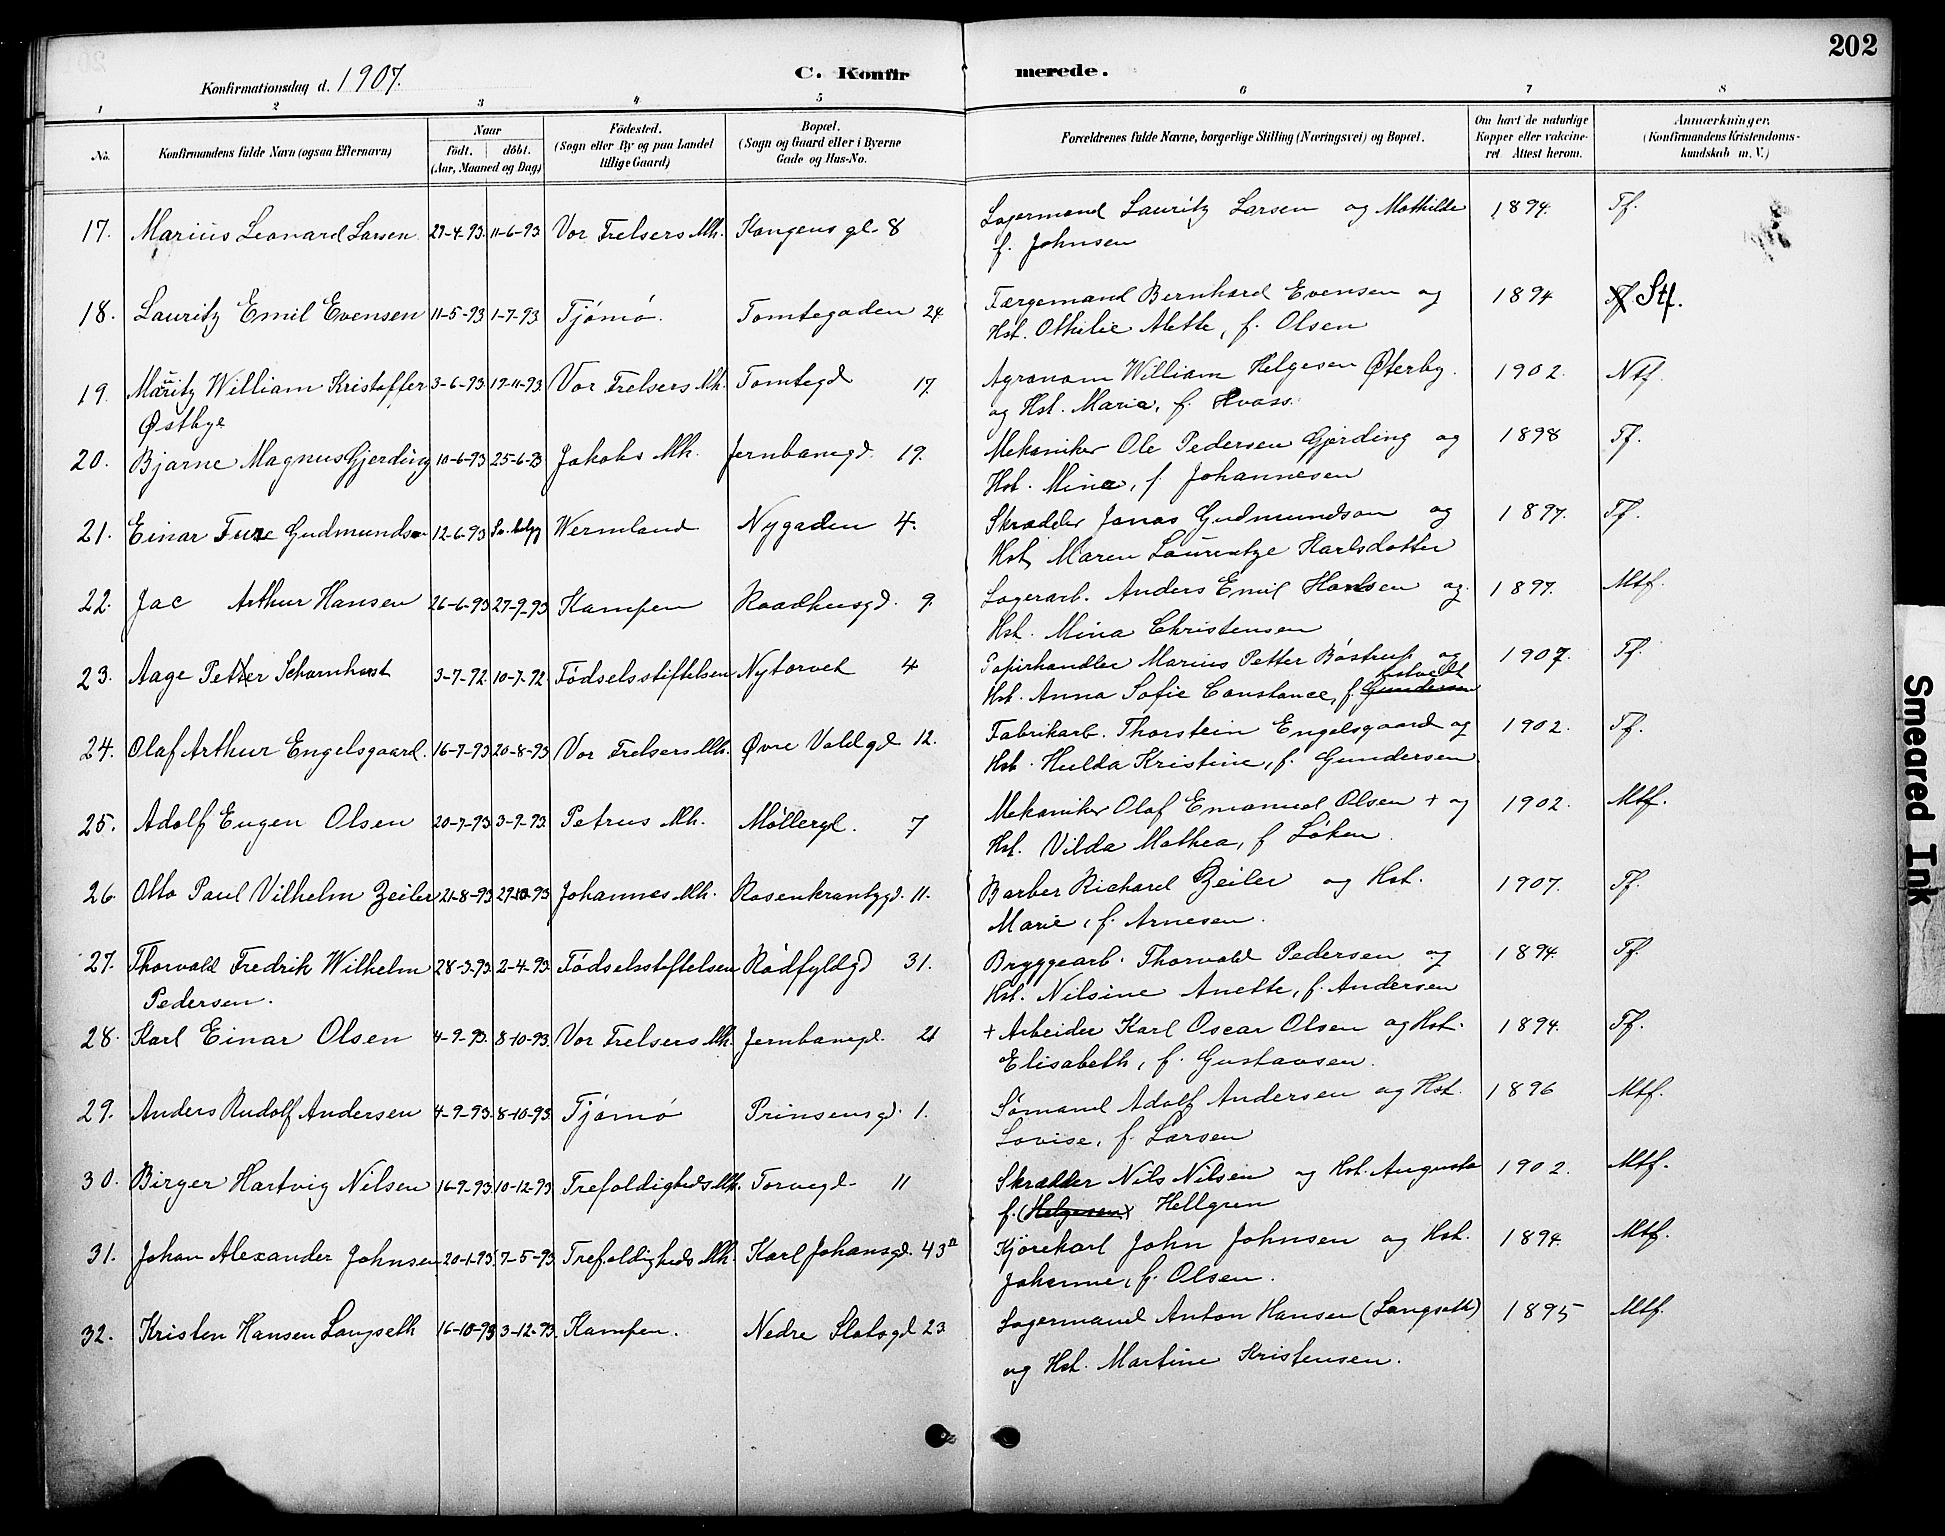 202
Konfirmationsdag d. 1907.
C. Konfir merede.
1 2 3 4 5 6 7 8
No. Konfirmandens fulde Navn (ogsaa Efternavn) Naar født. døbt. (Aar, Maaned og Dag) Fødested. (Sogn eller By og paa Landet tillige Gaard) Bopæl. (Sogn og Gaard eller i Byerne Gade og Hus-No. Forældrenes fulde Navne, borgerlige Stilling (Næringsvei) og Bopæl. Om havt de naturlige Kopper eller vakcineret Attest herom. Anmærkninger. (Konfirmandens Kristendomskundskab m. V.)
17. Marius Leonard Larsen 29-4-93. 11-6-93 Vor Frelsers Mh. Kongens gd. 8 Lagermand Lauritz Larsen og Mathilde 1894. Tf.
f. Johnsen
18. Lauritz Emil Evensen 11-5-93 1-7-93 Tjømø. Tomtegaden 24 Færgemand Bernhard Evensen og 1894 Stf.
Hst. Othilie Alette, f. Olsen
19. Mauritz William Kristoffer 3-6-93 19-11-93 Vor Frelsers Mh. Tomtegd 17. Agronom William Helgesen Østerby 1902. Ntf.
Østbye og Hst. Maria, f. Hvass.
20. Bjarne Magnus Gjerding 10-6-93 25-6-93 Jakobs Mh. Jernbanegd. 19. Mekaniker Ole Pedersen Gjerding og 1898 Tf.
Hst. Mina, f. Johannesen
21. Einar Ture Gudmundson 12-6-93 Wermland Nygaden 4. Skrædder Jonas Gudmundson og 1897. Tf.
Hst. Maren Laurentze Karlsdotter
22. Jac Arthur Hansen 26-6-93 27-9-93 Kampen Raadhusgd. 9. Lagerarb. Anders Emil Hansen og 1897. Mtf.
Hst. Mina Christensen
23. Aage Petter Scharnhorst 3-7-92 10-7-92 Fødselsstiftelsen Nytorvet 4 Papirhandler Marius Petter Bøstrup og 1907. Tf.
Hst. Anna Sofie Constance, f. Gundersen
24. Olaf Arthur Engelsgaard. 16-7-93 20-8-93 Vor Frelsers Mh. Øvre Voldgd 12. Fabrikarb. Thorstein Engelsgaard og 1902. Tf.
Hst. Hulda Kristine, f. Gundersen
25. Adolf Eugen Olsen 20-7-93 3-9-93. Petrus Mh. Møllergd. 7 Mekaniker Olaf Emanuel Olsen + og 1902. Mtf.
Hst. Vilda Mathea, f Løken
26. Otto Paul Vilhelm Zeiler 21-8-93 29-10-93 Johannes Mh. Rosenkrantzgd. 11. Barber Richard Zeiler og Hst. 1907. Tf.
Marie, f. Arnesen.
27. Thorvald Fredrik Wilhelm 28-3-93. 2-4-93. Fødselsstiftelsen Rødfyldgd 31. Bryggearb. Thorvald Pedersen og 1894. Tf.
Pedersen. Hst. Nilsine Anette, f. Andersen
28. Karl Einar Olsen 4-9-93. 8-10-93. Vor Frelsers Mh. Jernbanegd. 21 + Arbeider Karl Oscar Olsen og Hst. 1894. Tf.
Elisabeth, f. Gustavsen.
29. Anders Rudolf Andersen 4-9-93. 8-10-93. Tjømø Prinsensgd. 1. Sømand Adolf Andersen og Hst. 1896 Mtf.
Lovise, f. Larsen
30. Birger Hartvig Nilsen 16-9-93. 10-12-93 Trefoldigheds Mh. Torvegd. 11 Skrædder Nils Nilsen og Hst. Augusta 1902. Mtf.
f. (Helgesen) Hellgren
31. Johan Alexander Johnsen 20-1-93. 7-5-93 Trefoldigheds Mh. Karl Johansgd. 43a Kjørekarl John Johnsen og Hst. 1894. Mtf.
Johanne, f. Olsen.
32. Kristen Hansen Langseth 16-10-93 3-12-93. Kampen. Nedre Slotsgd 23 Lagermand Anton Hansen (Langseth) 1895 Mtf.
og Hst. Martine Kristensen.
Smeared Ink